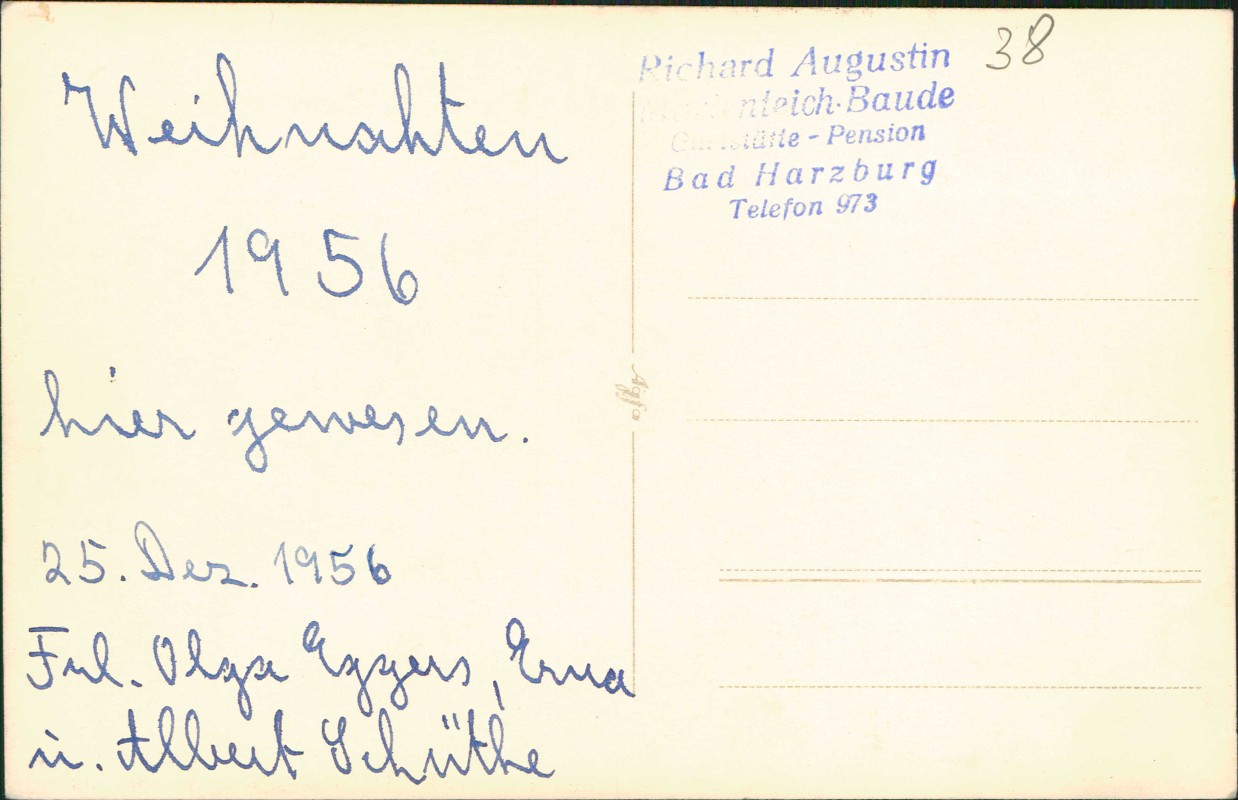 Weihnachten
1956
hier gewesen.
25. Dez. 1956
Frl. Olga Eggers, Erna
u. Albert Schüthe
Richard Augustin
Marienteich-Baude
Gaststätte - Pension
Bad Harzburg
Telefon 973
38
Agfa